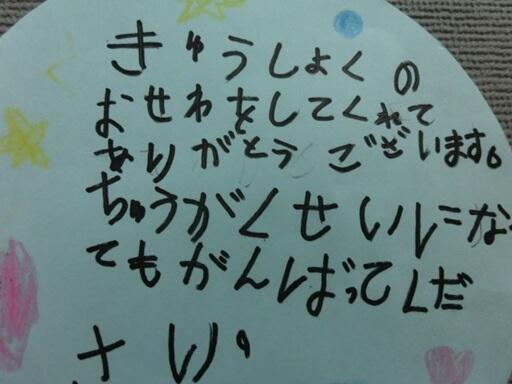 きゅうしょくの
おせわをしてくれて
ありがとうございます。
ちゅうがくせいになっ
てもがんばってくだ
さい。